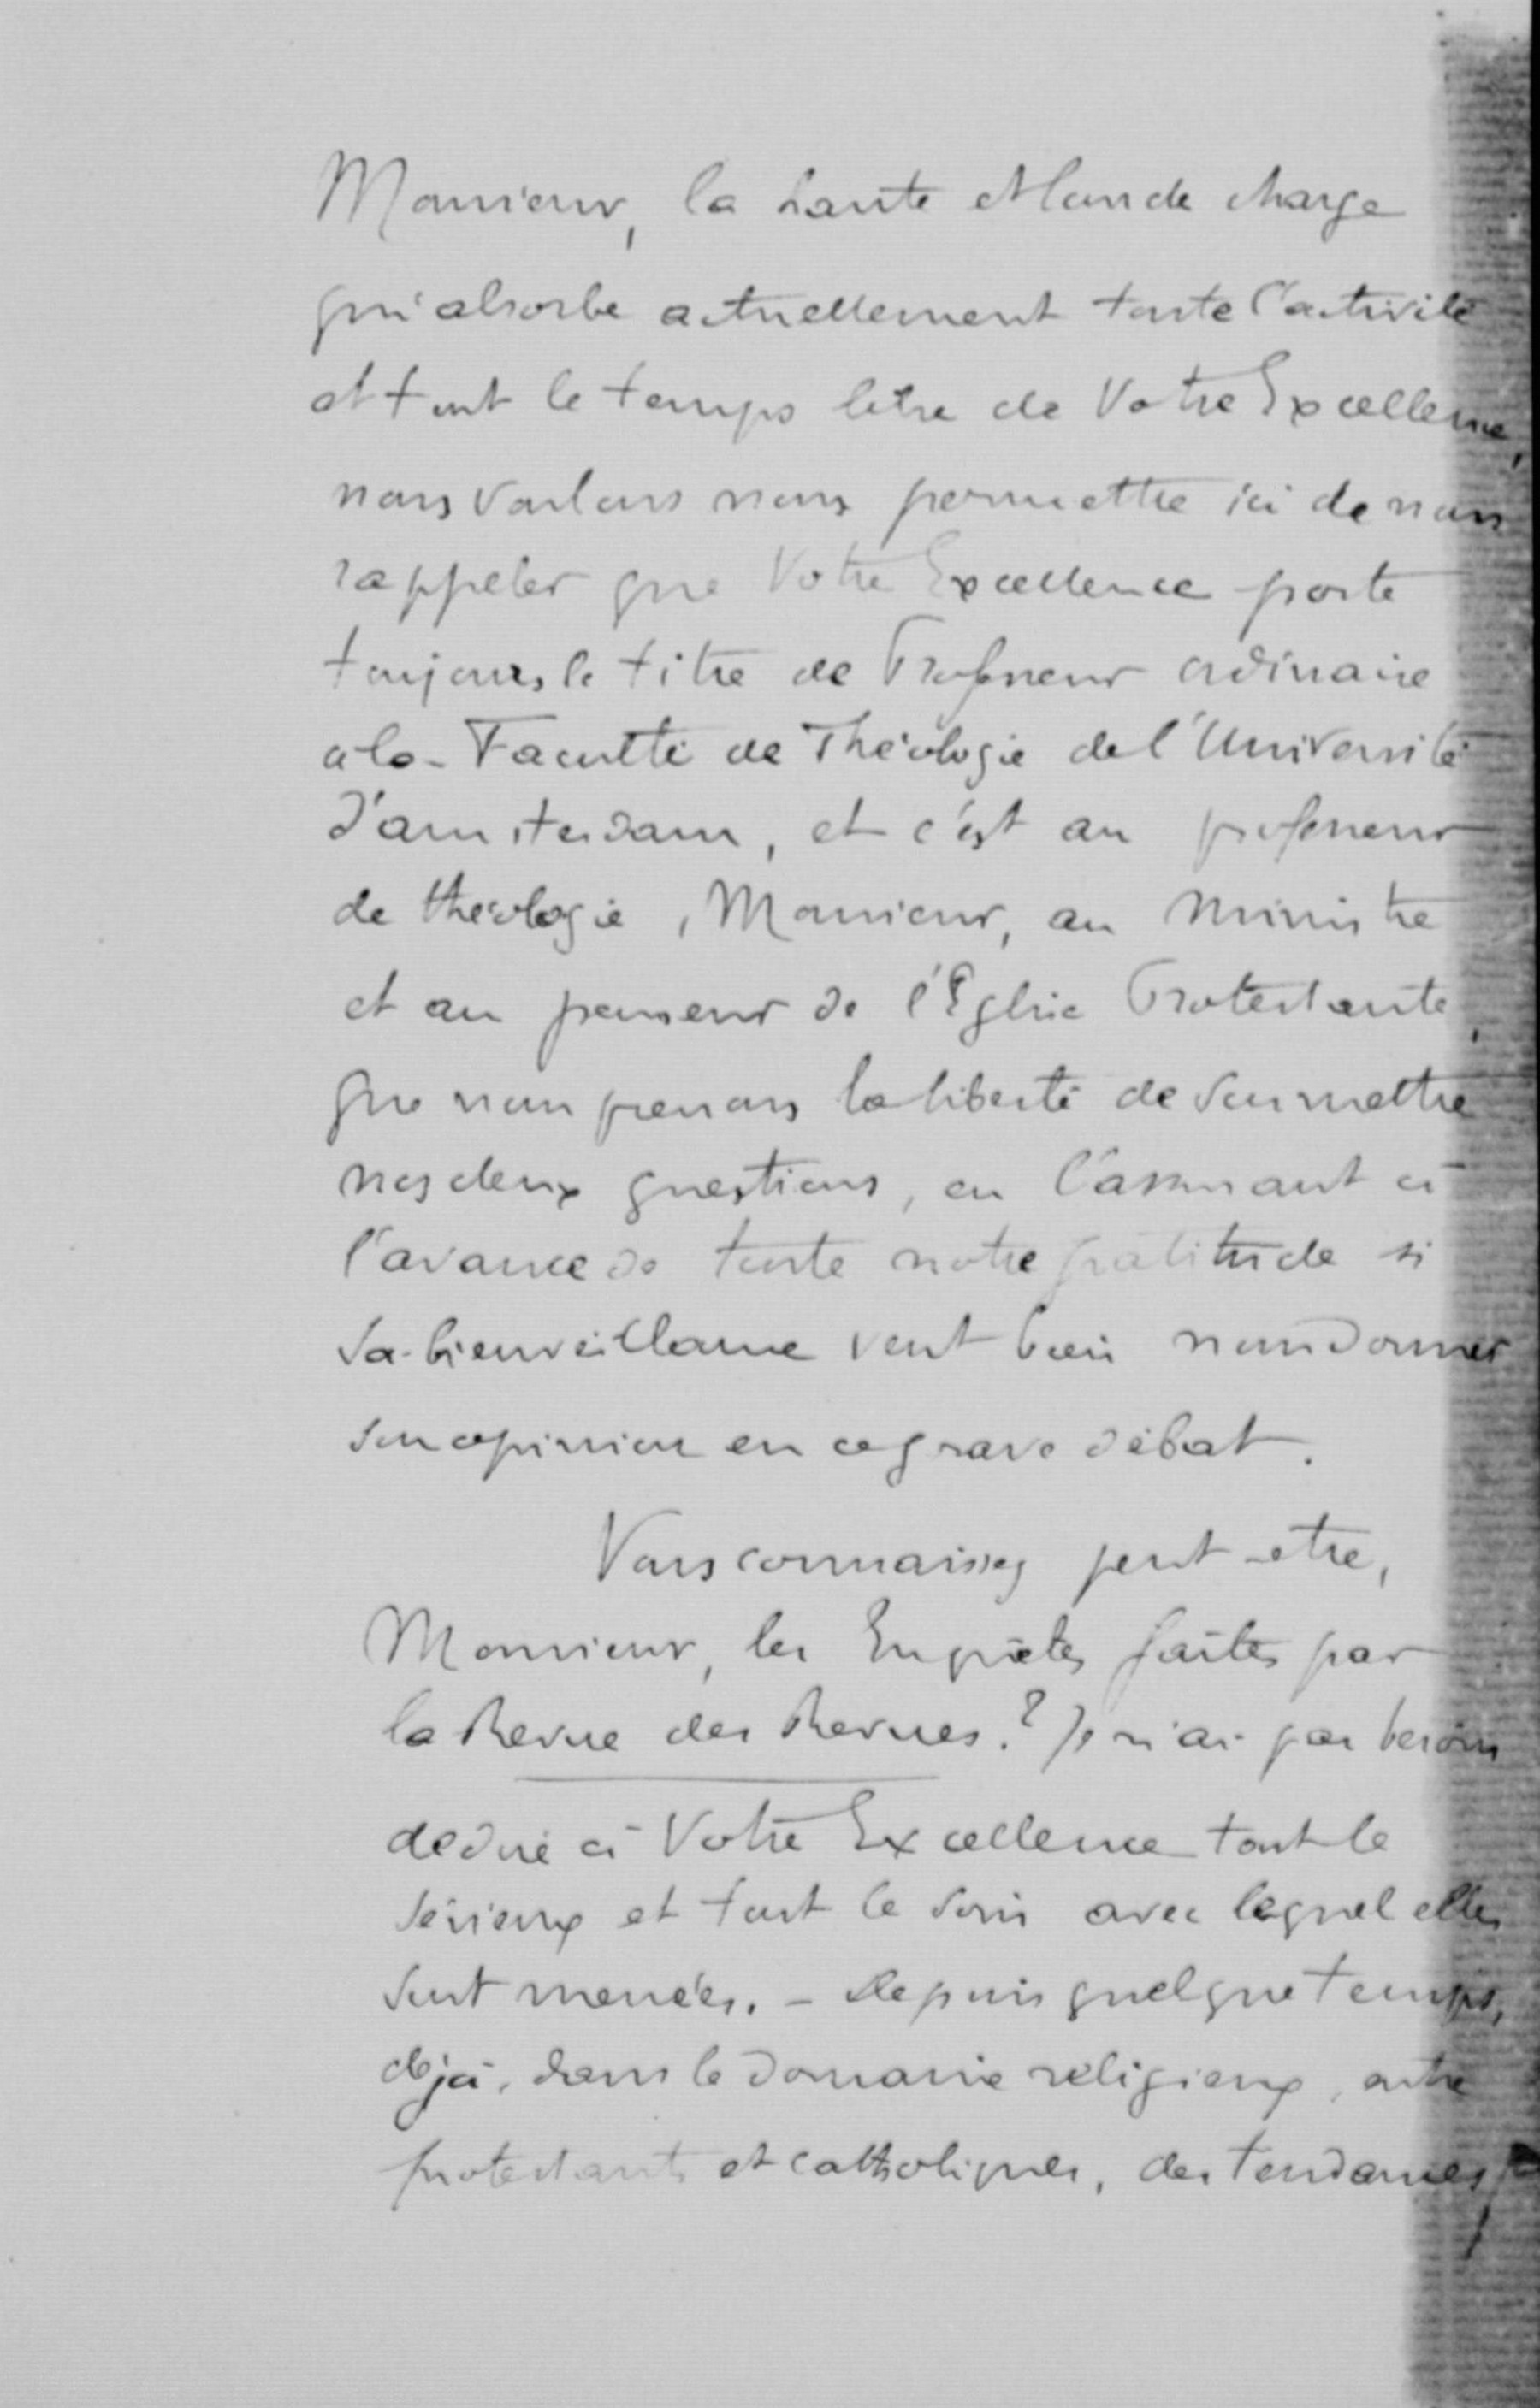 Monsieur, la haute et lourde charge
qui absorbe actuellement toute l'activité
et tout le temps libre de Votre Excellence,
nous voulons nous permettre ici de nous
rappeler que Votre Excellence porte
toujours le titre de Professeur ordinaire
a la Faculté de Théologie de l'Université
d'Amsterdam, et c'est au professeur
de théologie, Monsieur, au Ministre
et au penseur de l'Eglise Protestante,
que nous prenons la liberté de soumettre
nos deux questions, en l'assurant à
l'avance de toute notre gratitude si
sa bienveillance veut bien nous donner
son opinion en ce grave débat.
Vous connaissez peut-etre,
Monsieur, les Enquêtes faites par
la Revue des Revues.? Je n'ai pas besoin
de dire à Votre Excellence tout le
sérieux et tout le soin avec lequel elles
sont menées. - Depuis quelque temps,
déjà, dans le domaine religieux, entre
protestants et catholiques, des tendances